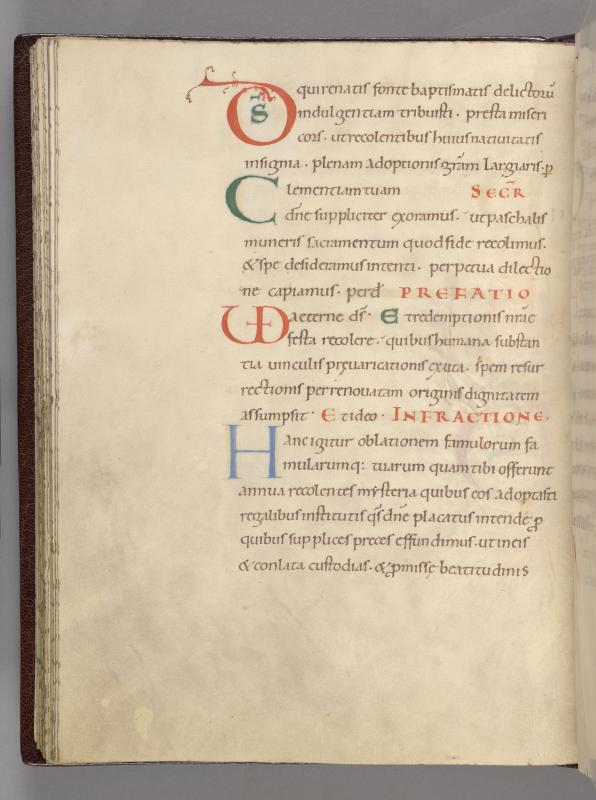 DS qui renatis fonte baptismatis delictorū
indulgentiam tribuisti · presta miseri
cors · ut recolentibus huius nativitatis
insignia · plenam adoptionis grām largiaris · p
Clementiam tuam SECR̄
dn̄e suppliciter exoramus · ut paschalis
muneris sacramentum quod fide recolimus ·
& spe desideramus intenti · perpetua dilectio
ne capiamus · per d̄ PREFATIO
VD aeterne ds̄ · Et redemptionis nr̄ae
festa recolere · quibus humana substan
tia vinculis prevaricationis exuta · spem resur
rectionis per renovatam originis dignitatem
assumpsit · Et ideo · INFRACTIONE ·
Hanc igitur oblationem famulorum fa
mularumq: tuarum quam tibi offerunt
annua recolentes mysteria quibus eos adoptasti
regalibus institutis qs̄ dn̄e placatus intende · ꝓ
quibus supplices preces effundimus · ut in eis
& conlata custodias · & ꝓmisse beatitudinis